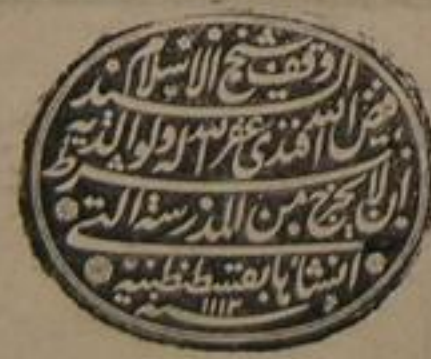 وقف شيخ الاسلام السيد
فيض الله افندى غفر الله له ولوالديه
بشرط ان لا يخرج من المدرسة التي
انشاها بقسطنطينية
سنة ١١١٣